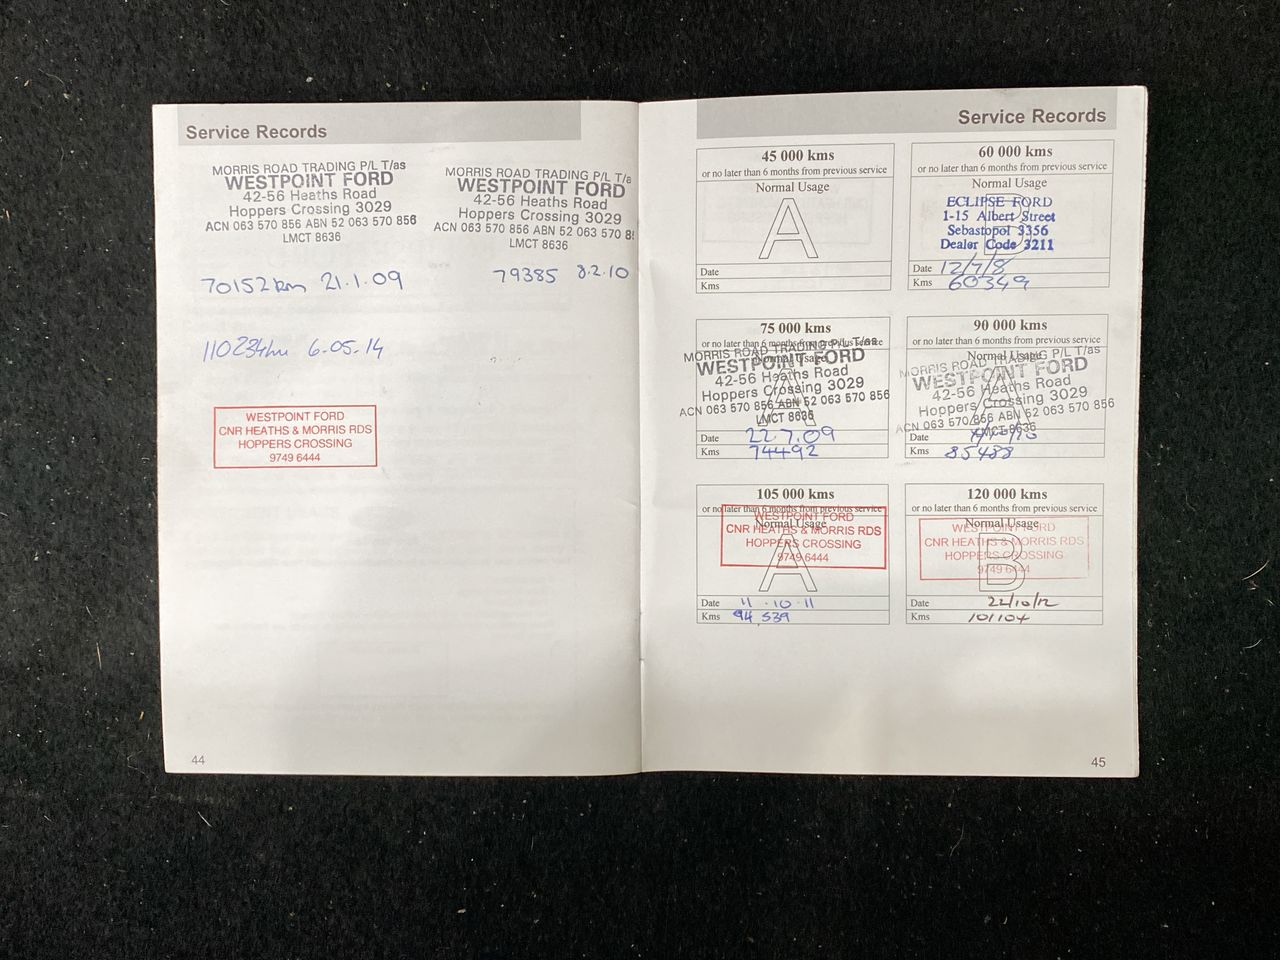 Service Records
MORRIS ROAD TRADING P/L T/as
WESTPOINT FORD
42-56 Heaths Road
Hoppers Crossing 3029
ACN 063 570 856 ABN 52 063 570 856
LMCT 8636
70152km 21.1.09
MORRIS ROAD TRADING P/L T/a
WESTPOINT FORD
42-56 Heaths Road
Hoppers Crossing 3029
ACN 063 570 856 ABN 52 063 570 8
LMCT 8636
79385 8.2.10
6.05.14
WESTPOINT FORD
CNR HEATHS & MORRIS RDS
HOPPERS CROSSING
9749 6444
44
Service Records
45 000 kms
or no later than 6 months from previous service
Normal Usage
A
Date
Kms
60 000 kms
or no later than 6 months from previous service
Normal Usage
B
ECLIPSE FORD
1-15 Albert Street
Sebastopol 3356
Dealer Code 3211
Date 12/7/8
Kms 60349
75 000 kms
or no later than 6 months from previous service
Normal Usage
A
MORRIS ROAD TRADING P/L T/as
WESTPOINT FORD
42-56 Heaths Road
Hoppers Crossing 3029
ACN 063 570 856 ABN 52 063 570 856
LMCT 8636
Date 22.7.09
Kms 74492
90 000 kms
or no later than 6 months from previous service
Normal Usage
A
MORRIS ROAD TRADING P/L T/as
WESTPOINT FORD
42-56 Heaths Road
Hoppers Crossing 3029
ACN 063 570 856 ABN 52 063 570 856
LMCT 8636
Date
Kms 85488
105 000 kms
or no later than 6 months from previous service
Normal Usage
A
WESTPOINT FORD
CNR HEATHS & MORRIS RDS
HOPPERS CROSSING
9749 6444
Date 11.10.11
Kms 94,539
120 000 kms
or no later than 6 months from previous service
Normal Usage
B
WESTPOINT FORD
CNR HEATHS & MORRIS RDS
HOPPERS CROSSING
9749 6444
Date 22/10/12
Kms 101104
45